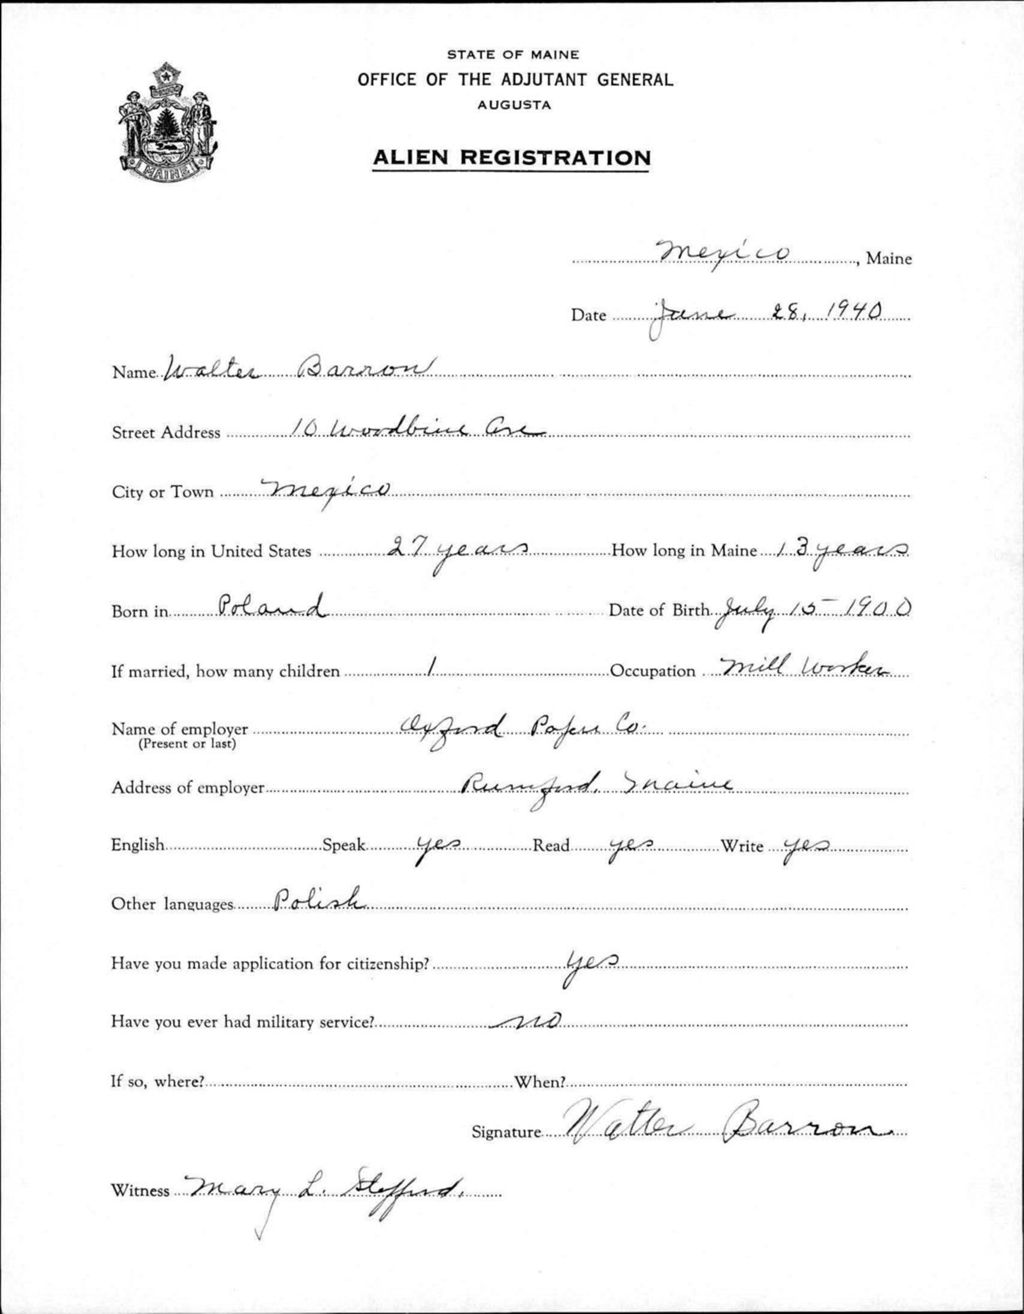 STATE OF MAINE
OFFICE OF THE ADJUTANT GENERAL
AUGUSTA
ALIEN REGISTRATION
MAINE
Mexico, Maine
Date June 28, 1940
Name Walter Barron
Street Address 10 Woodbine Ave
City or Town Mexico
How long in United States 27 years How long in Maine 13 years
Born in Poland Date of Birth July 15 - 1900
If married, how many children 1 Occupation Mill Worker
Name of employer Oxford Paper Co.
(Present or last)
Address of employer Rumford, Maine
English Speak yes Read yes Write yes
Other languages Polish
Have you made application for citizenship? yes
Have you ever had military service? no
If so, where? When?
Signature Walter Barron
Witness Mary L.